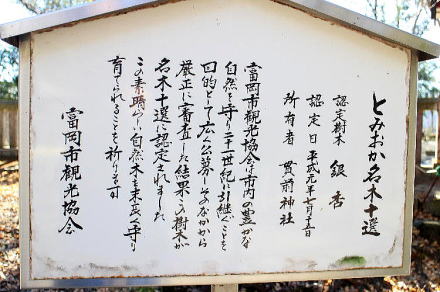 とみおか名木十選
認定樹木 銀杏
認定日 平成元年七月十五日
所有者 貫前神社
富岡市観光協会は市内の豊かな
自然を守り二十一世紀に引継ぐことを
目的として広く公募しそのなかから
厳正に審査した結果この樹木が
名木十選に認定されました
この素晴らしい自然木を末永く守り
育てられることを祈ります
富岡市観光協会